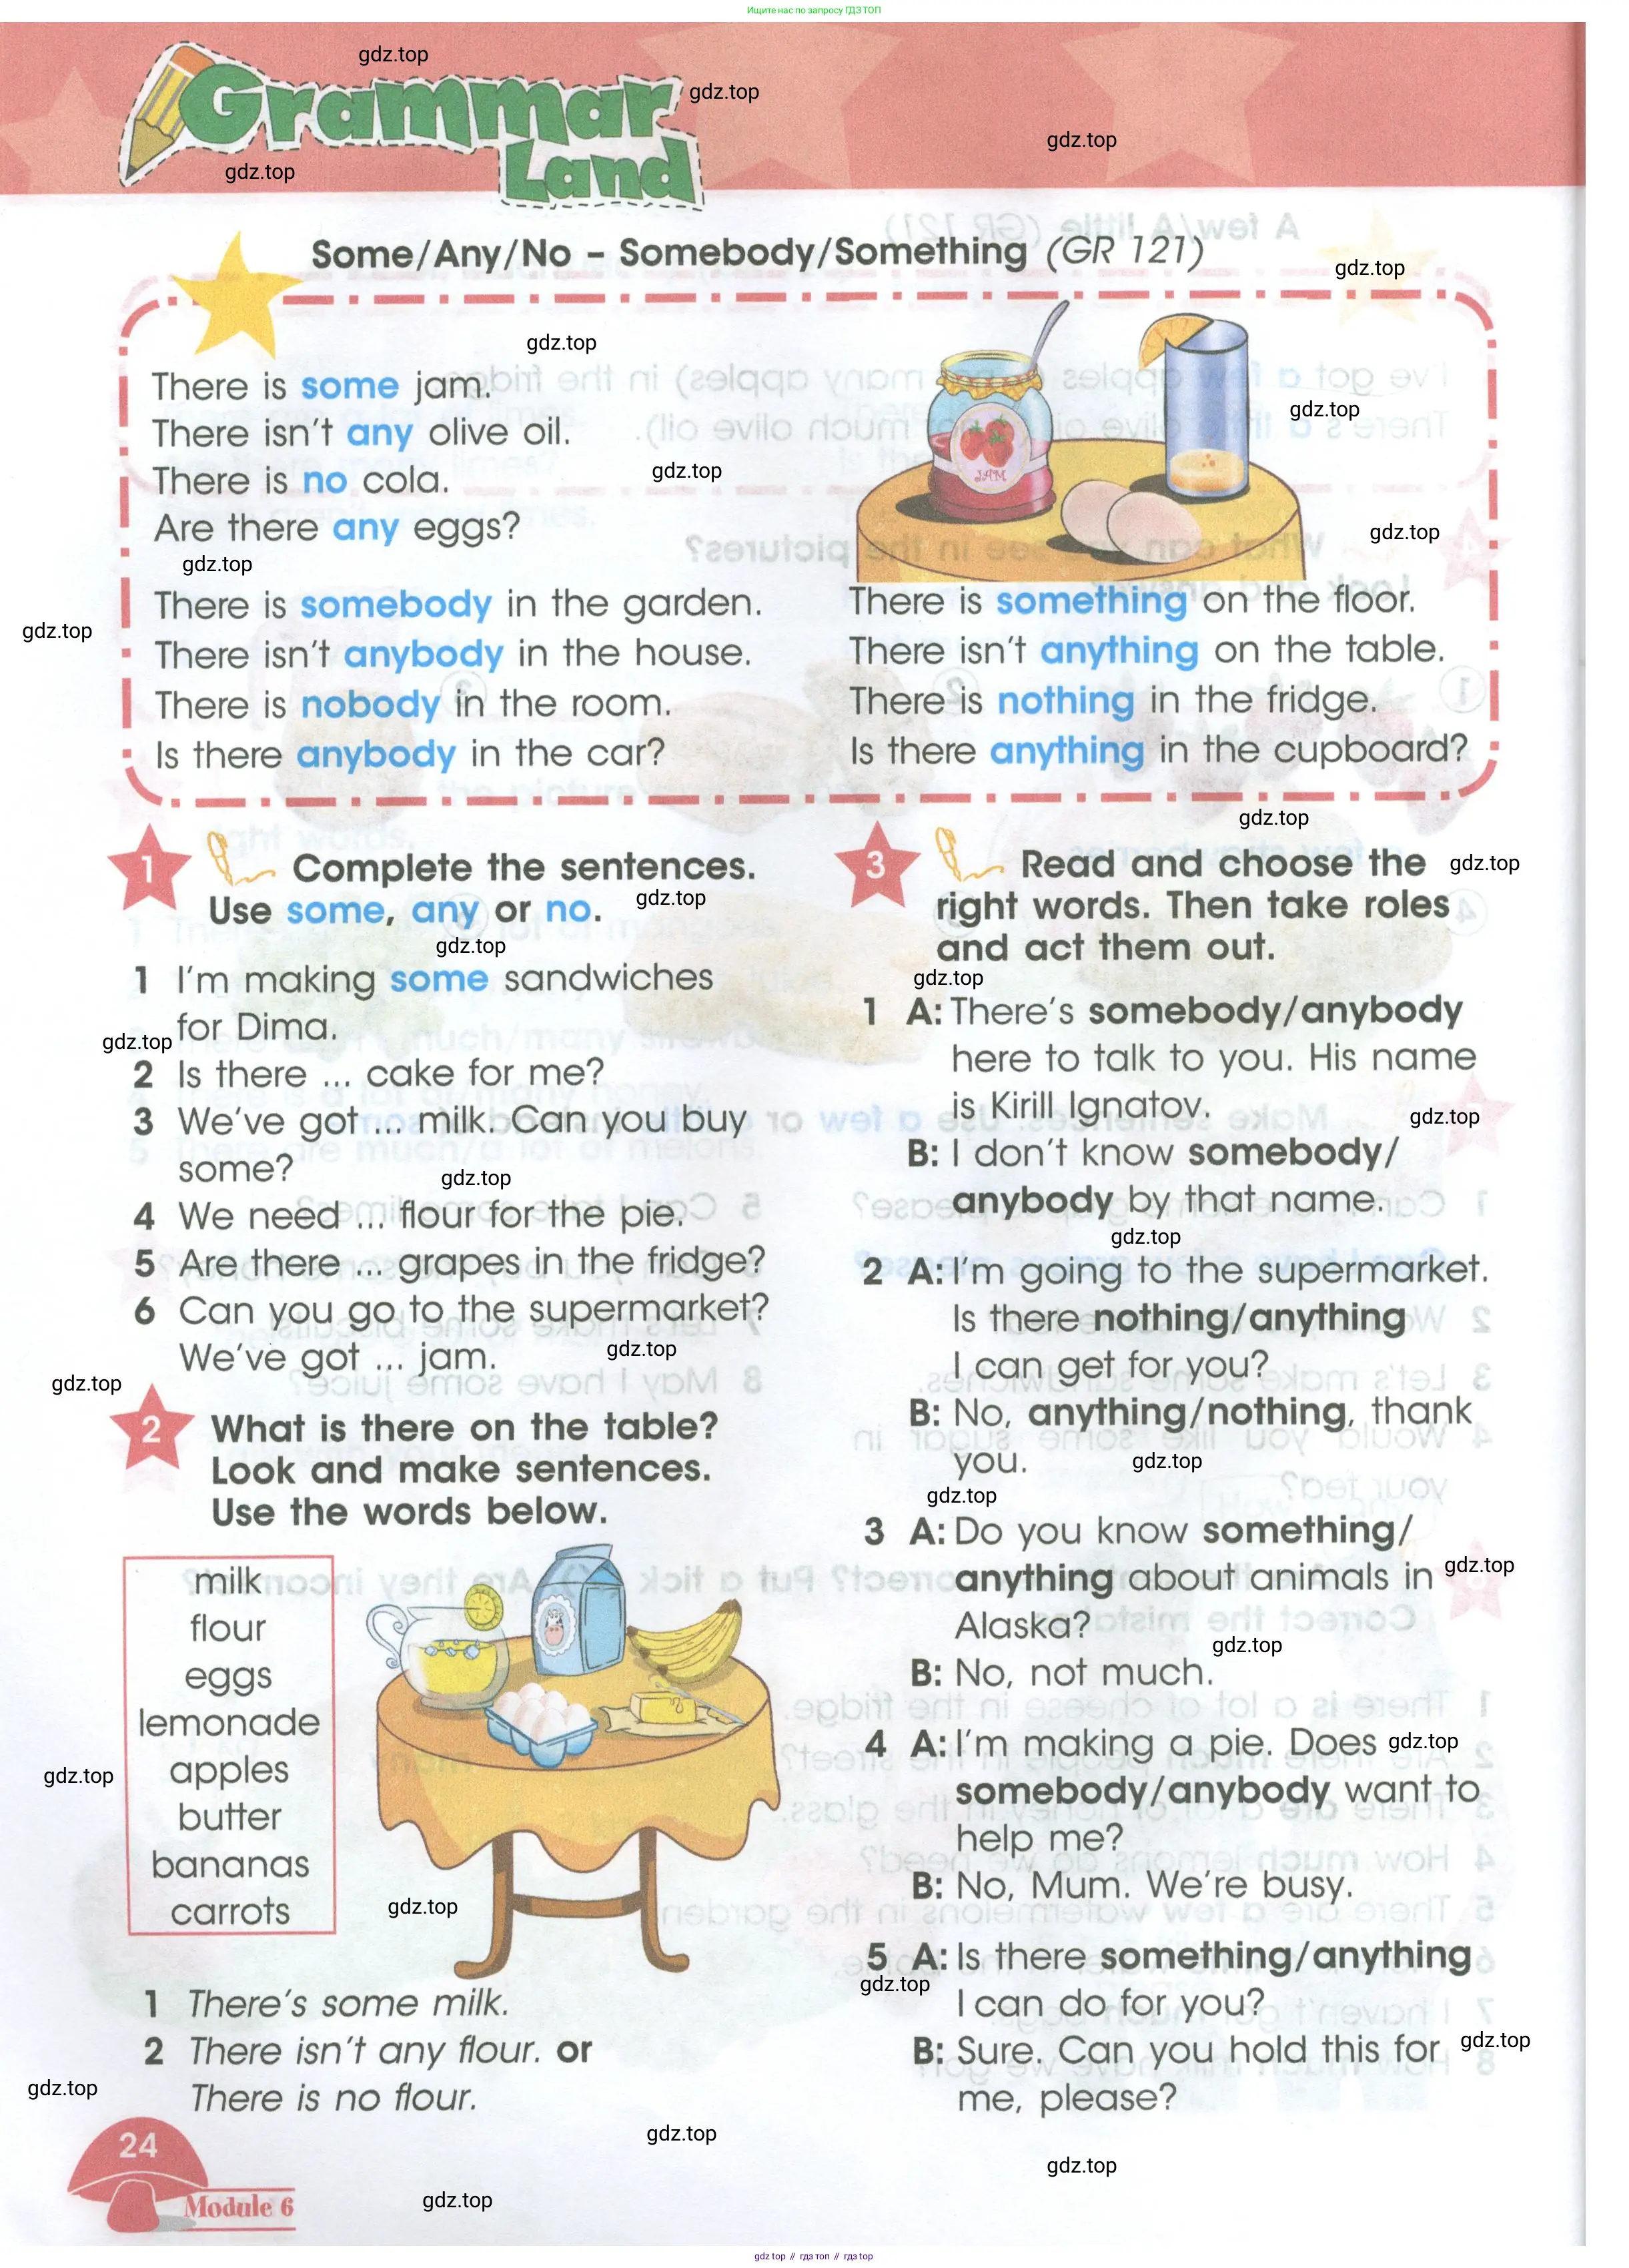 Ищите нас по запросу ГДЗ ТОП
gdz.top
Grammar
gdz.top
gdz.top
Land
gdz.top
Some/Any/No – Somebody/Something (GR 121)
gdz.top
gdz.top
There is some jam.
gdz.top
There isn't any olive oil.
gdz.top
There is no cola.
JAM
Are there any eggs?
gdz.top
gdz.top
There is somebody in the garden.
gdz.top
There isn't anybody in the house.
There is nobody in the room.
Is there anybody in the car?
There is something on the floor.
There isn't anything on the table.
There is nothing in the fridge.
Is there anything in the cupboard?
gdz.top
1 Complete the sentences.
Use some, any or no.
gdz.top
gdz.top
1 I'm making some sandwiches
for Dima.
gdz.top
2 Is there ... cake for me?
3 We've got ... milk. Can you buy
some?
gdz.top
4 We need ... flour for the pie.
5 Are there ... grapes in the fridge?
6 Can you go to the supermarket?
We've got ... jam.
gdz.top
gdz.top
2 What is there on the table?
Look and make sentences.
Use the words below.
milk
flour
eggs
lemonade
apples
butter
bananas
carrots
gdz.top
gdz.top
1 There's some milk.
2 There isn't any flour. or
There is no flour.
gdz.top
gdz.top
24
Module 6
gdz.top
3 Read and choose the
gdz.top
right words. Then take roles
and act them out.
gdz.top
1 A: There's somebody/anybody
here to talk to you. His name
is Kirill Ignatov.
gdz.top
B: I don't know somebody/
anybody by that name.
gdz.top
2 A: I'm going to the supermarket.
Is there nothing/anything
I can get for you?
B: No, anything/nothing, thank
you.
gdz.top
gdz.top
3 A: Do you know something/
anything about animals in
gdz.top
Alaska?
gdz.top
B: No, not much.
4 A: I'm making a pie. Does
gdz.top
somebody/anybody want to
help me?
B: No, Mum. We're busy.
5 A: Is there something/anything
gdz.top
I can do for you?
B: Sure. Can you hold this for
gdz.top
me, please?
gdz.top
gdz top // гдз топ // гдз top